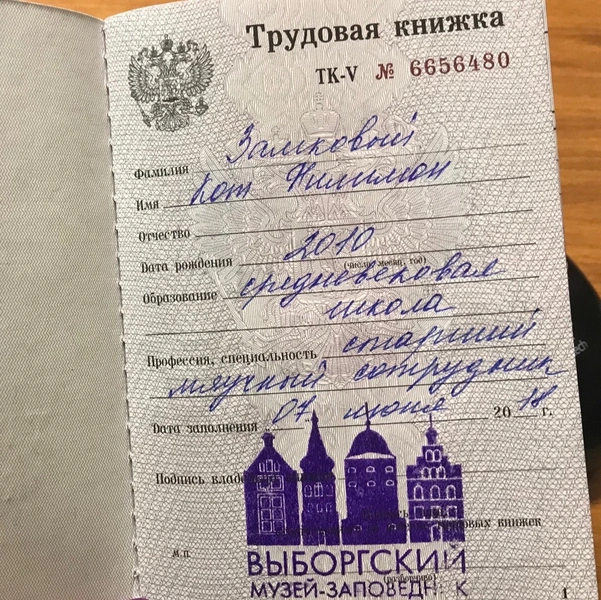 Трудовая книжка
ТК-V № 6656480
Фамилия Замковый
Имя Кот Филимон
Отчество
Дата рождения 2010
(число, месяц, год)
Образование средневековая
школа
Профессия, специальность старший
мяучный сотрудник
Дата заполнения 07 июня 2018 г.
Подпись
трудовых книжек
М.П.
(разборчиво)
ВЫБОРГСКИЙ
МУЗЕЙ-ЗАПОВЕДНИК
1